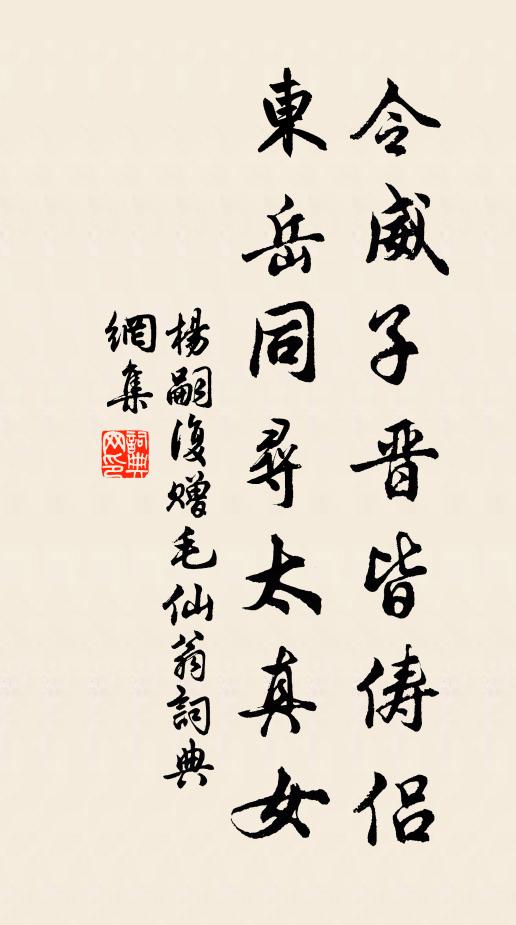 令威子晋皆儔侣
東岳同尋太真女
楊嗣復贈毛仙翁詞典
網集
詞典
网印